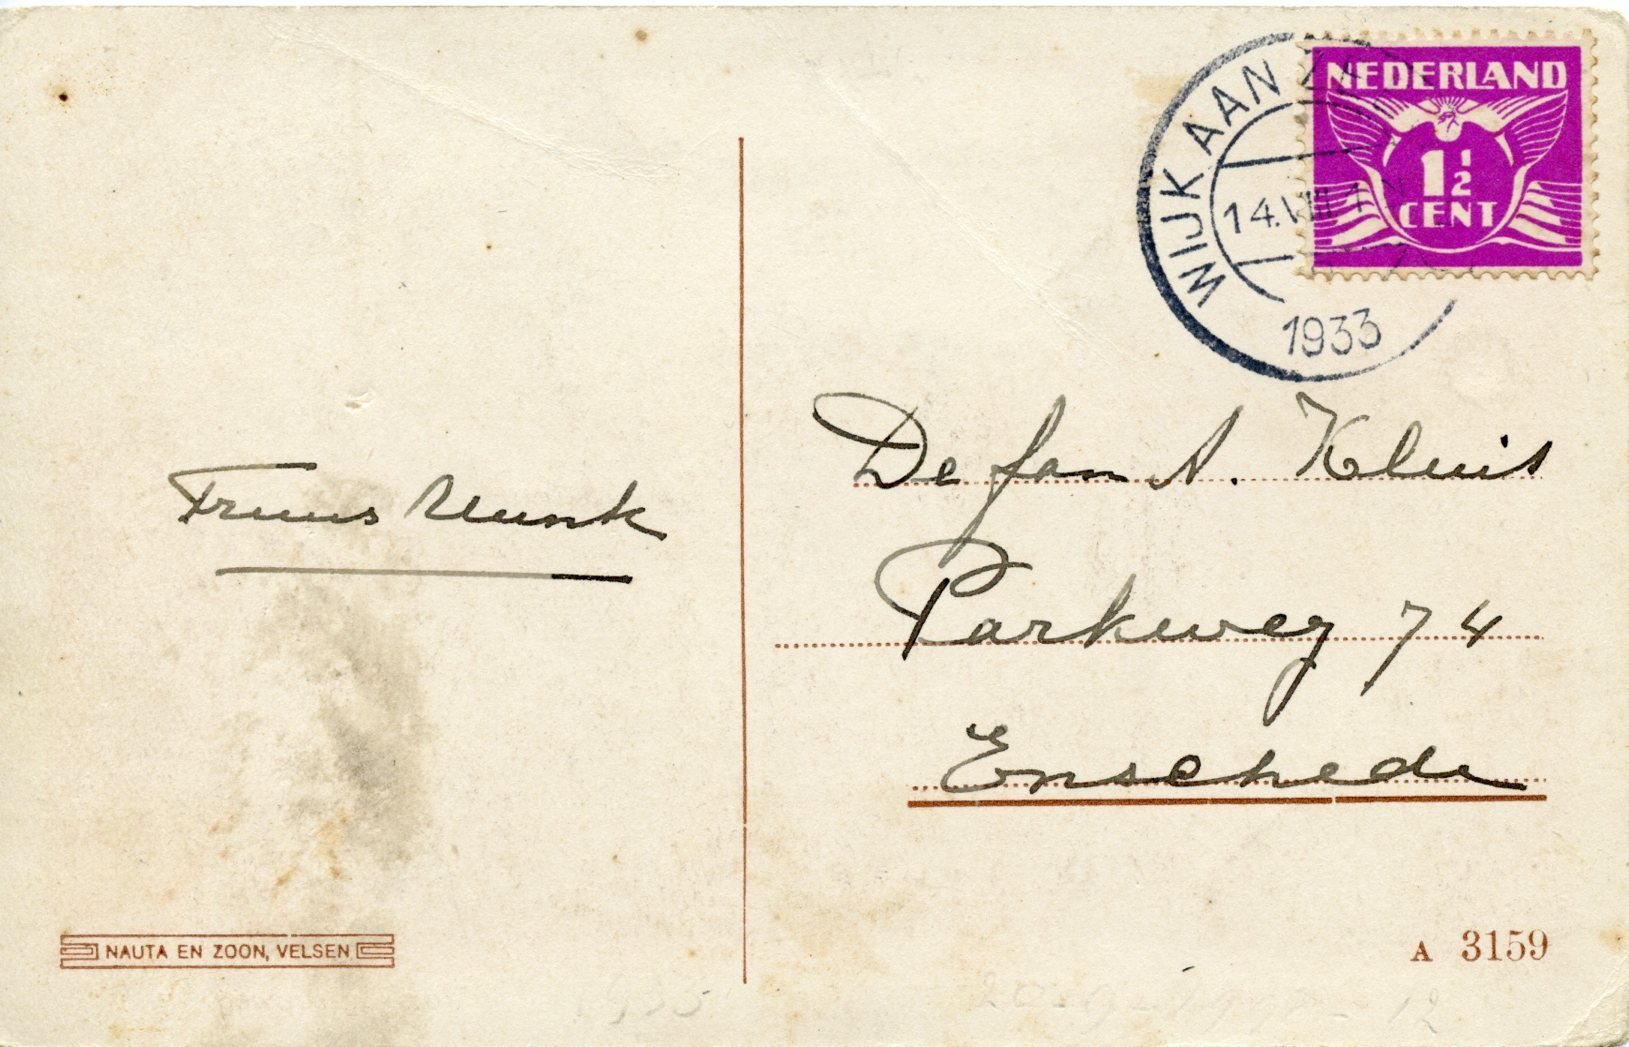 WIJK AAN
14.VIII
1933
NEDERLAND
1 1/2
CENT
De fam A. Kluis
Truus Munk
Parkweg 74
Enschede
NAUTA EN ZOON, VELSEN
A 3159
1933